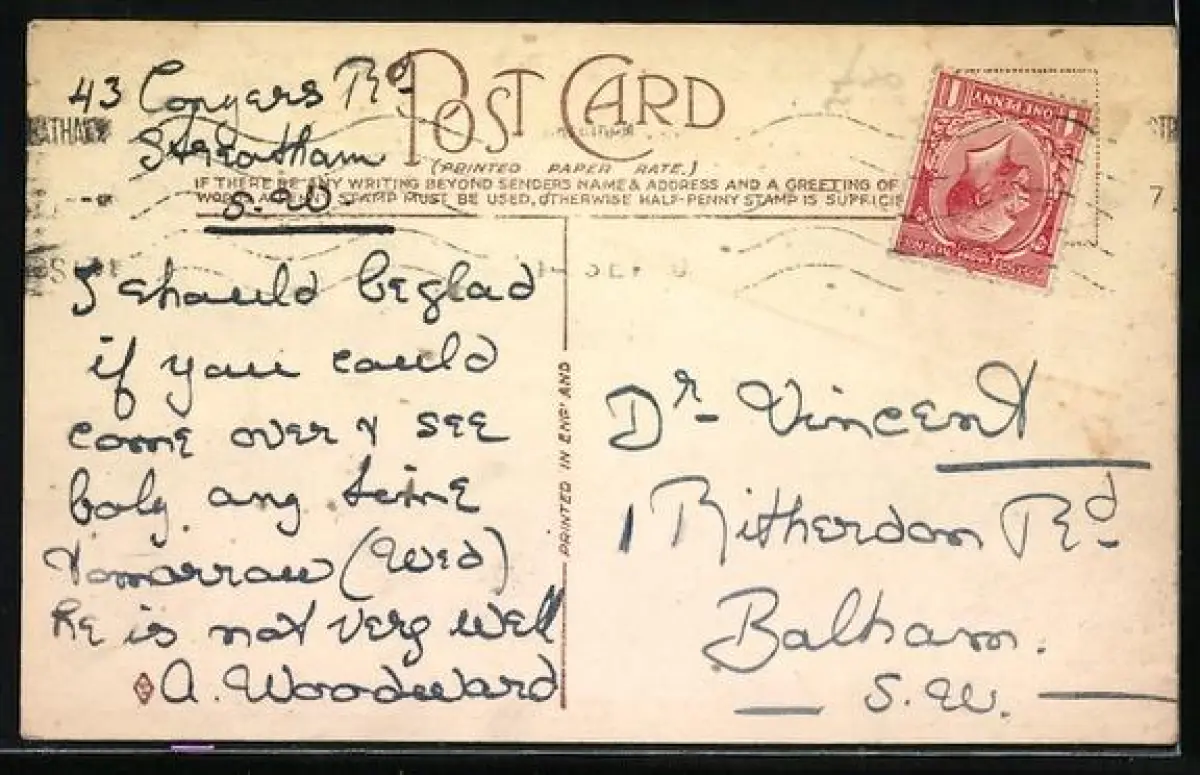 43 Conyers Rd
Streatham
S.W
POST CARD
(PRINTED PAPER RATE.)
IF THERE BE ANY WRITING BEYOND SENDERS NAME & ADDRESS AND A GREETING OF
WORDS A PENNY STAMP MUST BE USED, OTHERWISE HALF-PENNY STAMP IS SUFFICIE
I should be glad
if you could
come over & see
baby any time
tomorrow (Wed)
he is not very well
A. Woodward
PRINTED IN ENGLAND
ONE PENNY
1 1
Dr- Vincent
1 Ritherdon Rd
Balham.
S.W.
7